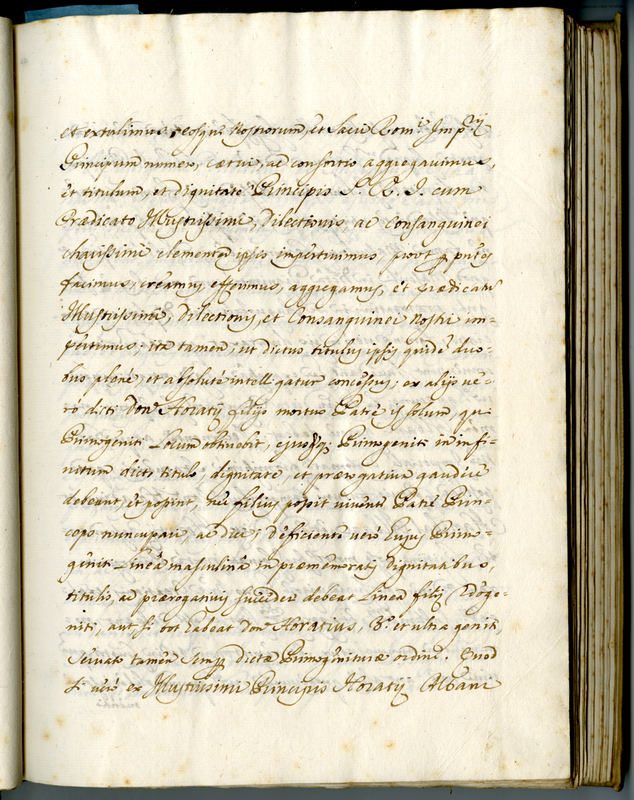 et extulimus, eosque Nostrorum, et Sacri Rom.i Imp.ij
Principum numero, cœtui, ac consortio aggregavimus,
et titulum, et dignitatē Principis S. R. I. cum
Prædicato Illustrissimi, Dilectionis, ac Consanguinei
charissimi clementer ipsis impertivimus, prout p̱ p̄ntes
facimus, creamus, efferimus, aggregamus, et prædicatū
Illustrissimi, Dilectionis, et Consanguinei Nostri im-
pertimus; ita tamen, ut dictus titulus ipsis quidē duo-
bus plenè et absolutè intelligatur concessus, ex alijs ve-
rò dicti Don Horatij filijs mortuo Patre is solum, qui
Primogeniti Locum obtinebit, ejusq; Primogeniti in infi-
nitum dicto titulo, dignitate, et prærogativa gaudere
debeant, et possint, nec filius possit vivente Patre Prin-
ceps nuncupari, ac dici; deficiente verò hujus Primo-
geniti Linea masculina in præmemoratis dignitatibus,
titulis, ac prærogativis succedere debeat Linea filij 2doge-
niti, aut si tot habeat Don Horatius, 3.o et ultra geniti,
servato tamen semp̱ dictæ Primogenituræ ordine. Quod
si verò ex Illustrissimi Principis Horatij Albani